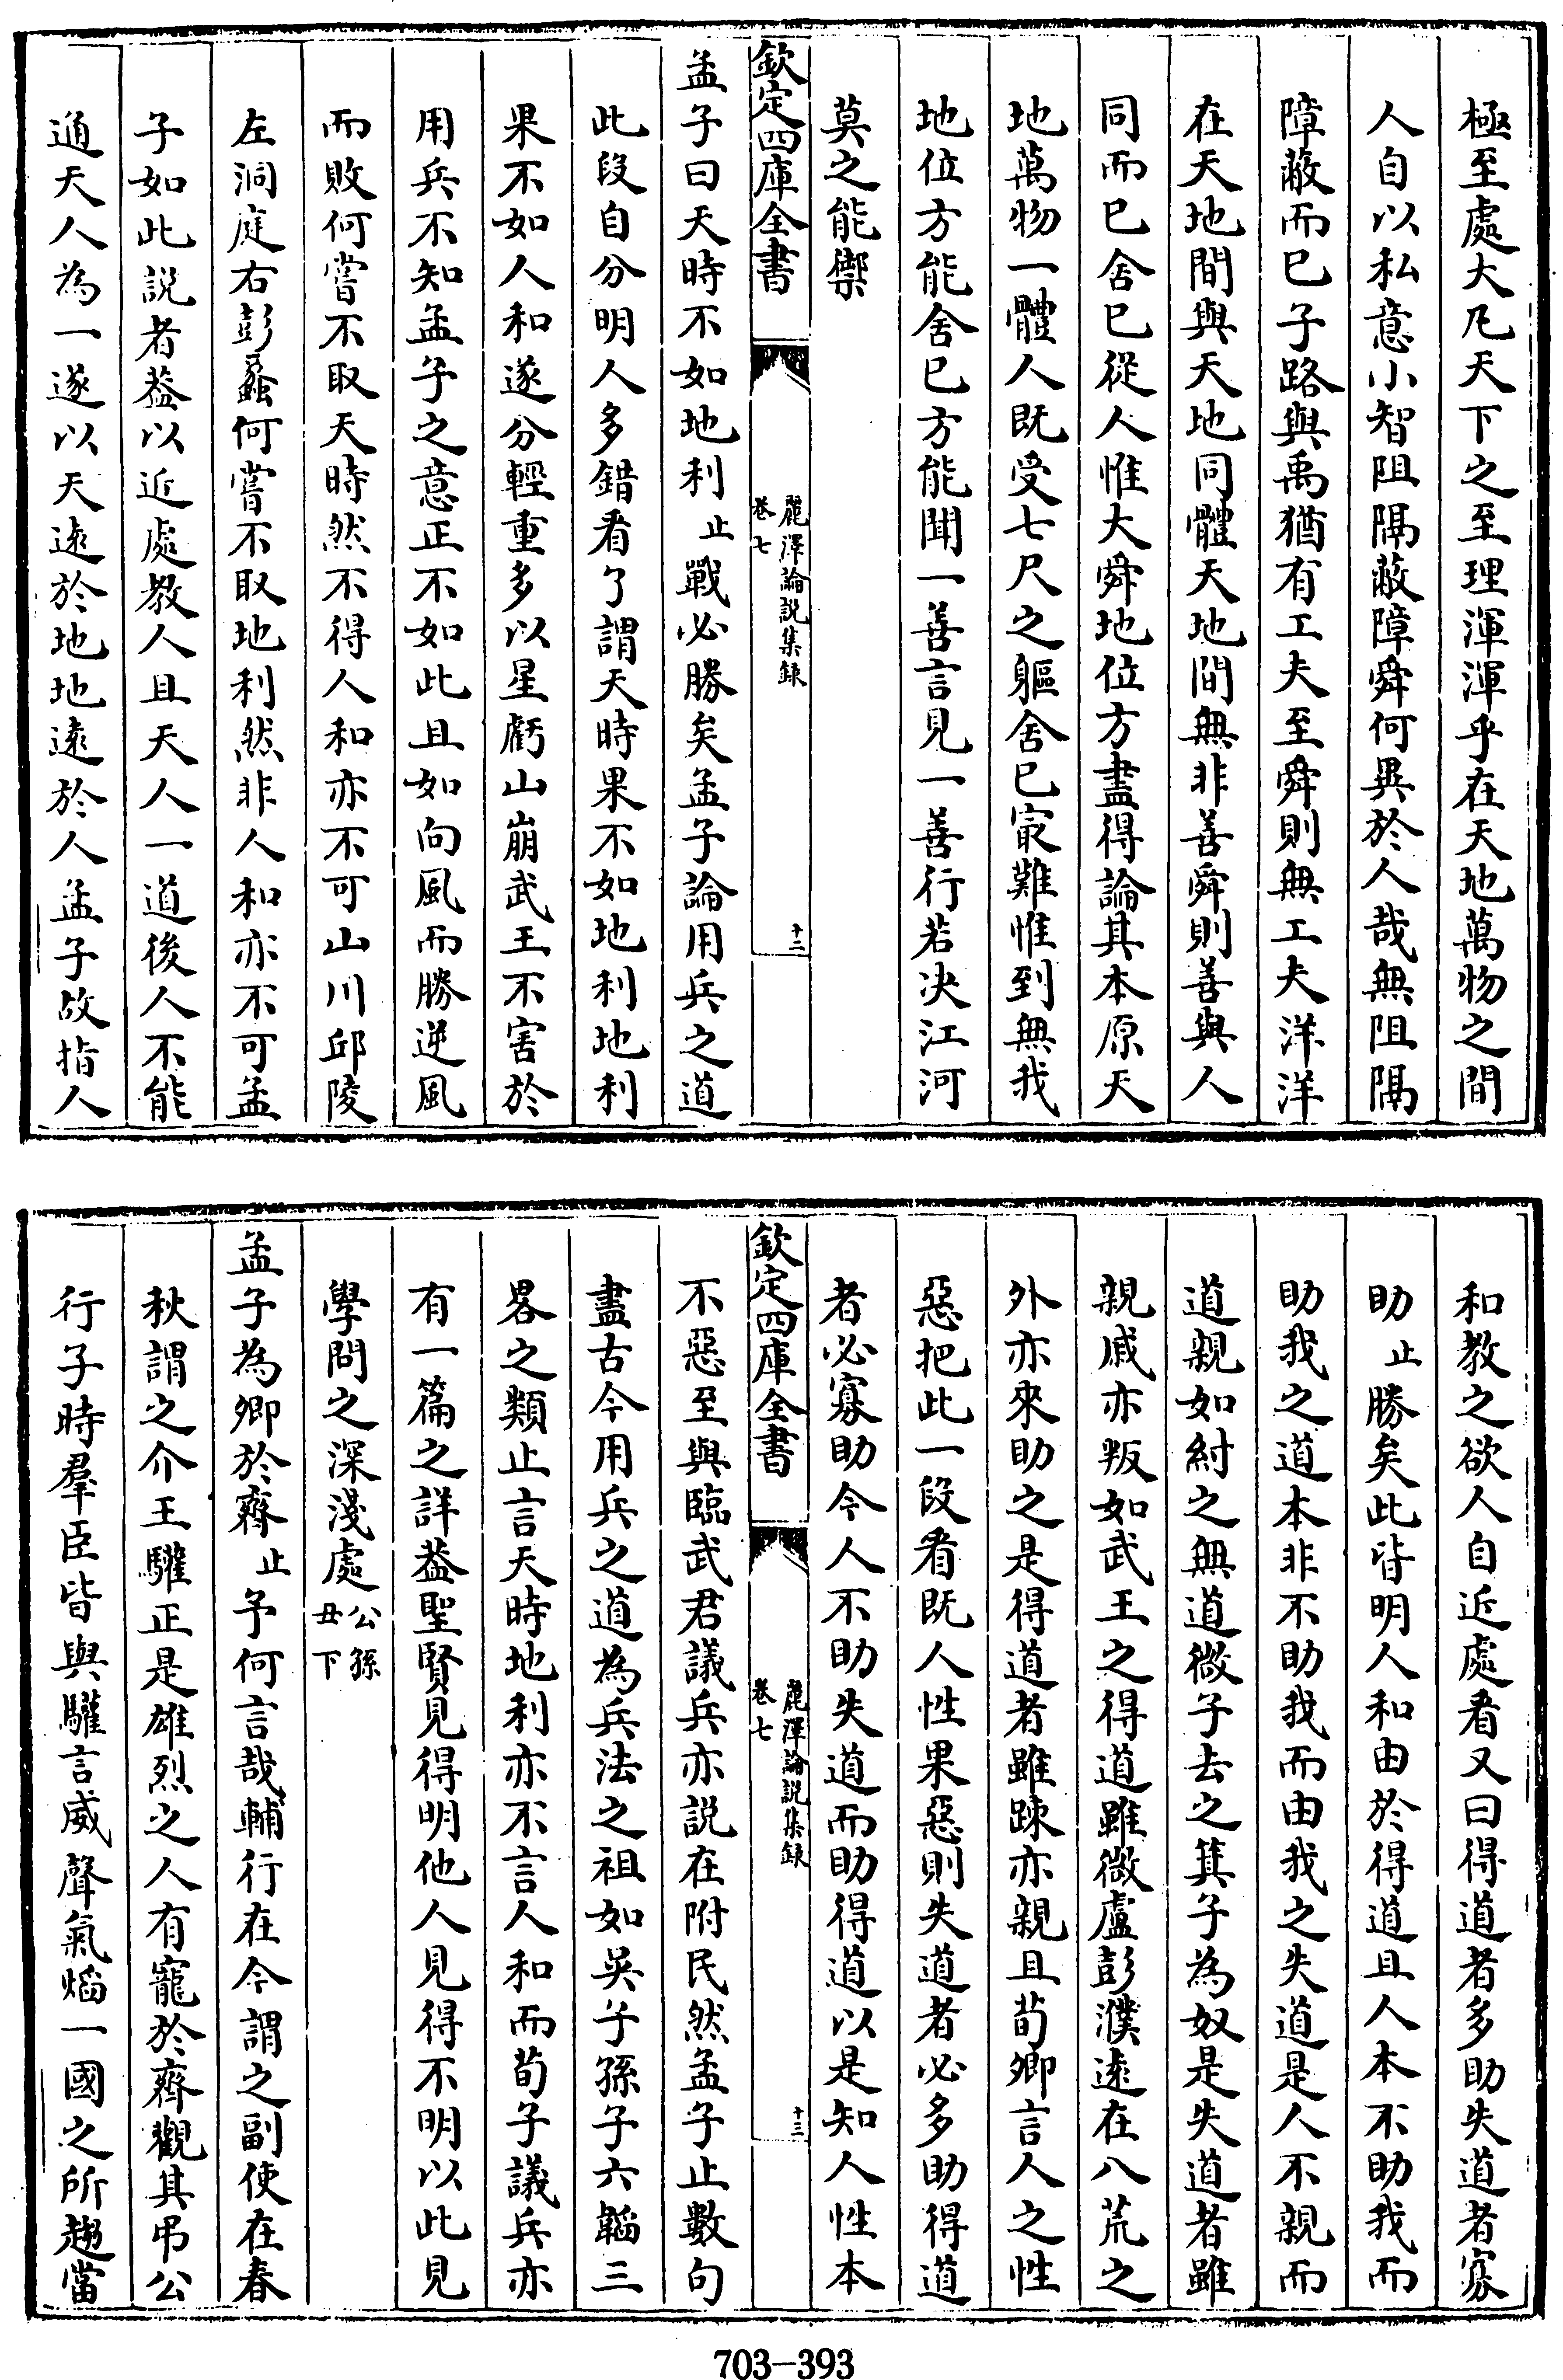 極至處大凡天下之至理渾渾乎在天地萬物之間
人自以私意小智阻隔蔽障舜何異於人哉無阻隔
障蔽而已子路與禹猶有工夫至舜則無工夫洋洋
在天地間與天地同體天地間無非善舜則善與人
同而已舍已從人惟大舜地位方盡得論其本原天
地萬物一體人既受七尺之軀舍已㝡難惟到無我
地位方能舍已方能聞一善言見一善行若决江河
莫之能禦
欽定四庫全書
麗澤論説集録
卷七
十二
孟子曰天時不如地利止戰必勝矣孟子論用兵之道
此段自分明人多錯看了謂天時果不如地利地利
果不如人和遂分輕重多以星虧山崩武王不害於
用兵不知孟子之意正不如此且如向風而勝逆風
而敗何嘗不取天時然不得人和亦不可山川邱陵
左洞庭右彭蠡何嘗不取地利然非人和亦不可孟
子如此説者葢以近處教人且天人一道後人不能
通天人為一遂以天逺於地地逺於人孟子故指人
和教之欲人自近處看又曰得道者多助失道者寡
助止勝矣此皆明人和由於得道且人本不助我而
助我之道本非不助我而由我之失道是人不親而
道親如紂之無道微子去之箕子為奴是失道者雖
親戚亦叛如武王之得道雖微盧彭濮逺在八荒之
外亦來助之是得道者雖踈亦親且荀卿言人之性
惡把此一段看既人性果惡則失道者必多助得道
者必寡助今人不助失道而助得道以是知人性本
欽定四庫全書
麗澤論説集録
卷七
十三
不惡至與臨武君議兵亦説在附民然孟子止數句
盡古今用兵之道為兵法之祖如吳子孫子六韜三
畧之類止言天時地利亦不言人和而荀子議兵亦
有一篇之詳葢聖賢見得明他人見得不明以此見
學問之深淺處公孫丑下
孟子為卿於齊止予何言哉輔行在今謂之副使在春
秋謂之介王驩正是雄烈之人有寵於齊觀其弔公
行子時羣臣皆與驩言威聲氣熖一國之所趨當
703-393